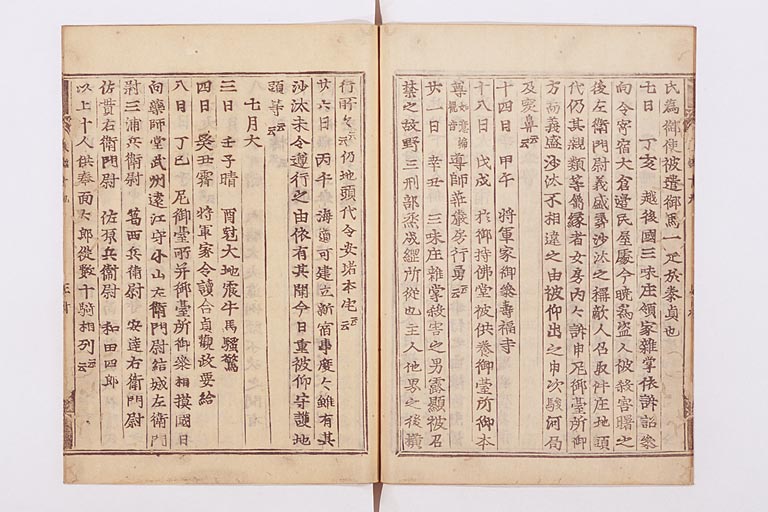 氏為御使被遣御馬一疋於秦貞也
七日 丁亥 越後國三味庄領家雜掌依訴訟參
向令寄宿大倉邊民屋處今曉為盗人被殺害曙之
後左衛門尉義盛尋沙汰之稱敵人召取件庄地頭
代仍其親類等属縁者女房内々訴申尼御臺所御
方而義盛沙汰不相違之由被仰出之申次駿河局
及突鼻云云
十四日 甲午 將軍家御參壽福寺
十八日 戊戌 於御持佛堂被供養御臺所御本
尊如意輪観音導師莊嚴房行勇云云
廿一日 辛丑 三味庄雜掌殺害之男露顯被召
禁之故野三刑部烝成綱所從也主人他界之後横
行所々云云仍地頭代令安堵本宅云云
廿六日 丙午 海道可建立新宿事度々雖有其
沙汰未令遵行之由依有其聞今日重被仰守護地
頭等云云
七月大
三日 壬子晴 酉尅大地震牛馬騒驚
四日 癸丑霽 將軍家令讀合貞觀政要給
八日 丁巳 尼御臺所并御臺所御參相摸國日
向藥師堂武州遠江守小山左衛門尉結城左衛門
尉三浦兵衛尉 葛西兵衛尉 安達右衛門尉
佐貫右衛門尉 佐原兵衛尉 和田四郎
以上十人供奉面々郎從數十騎相列云云